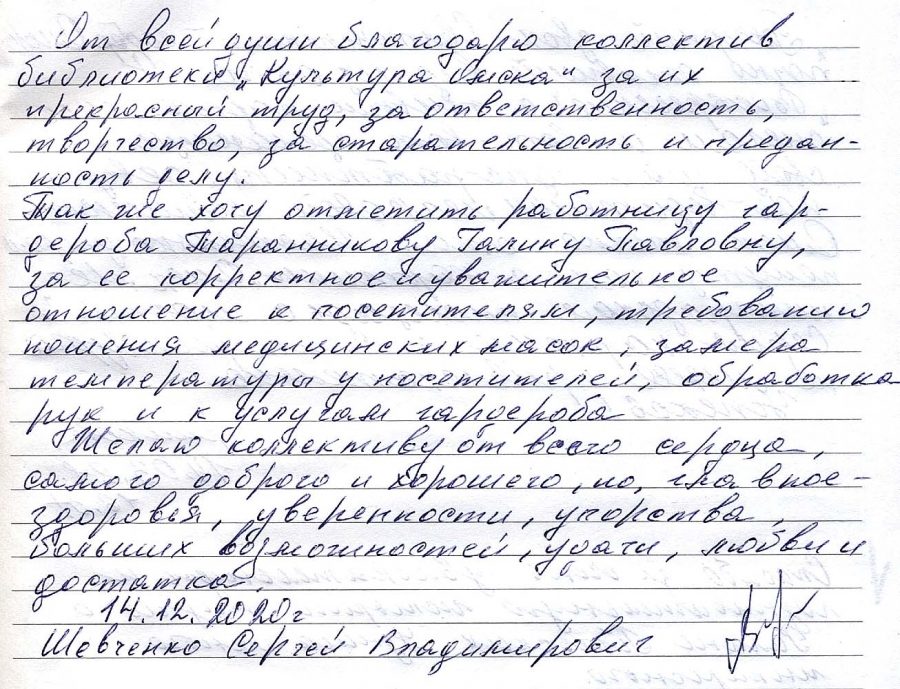 От всей души благодарю коллектив
библиотеки „Культура Омска“ за их
прекрасный труд, за ответственность,
творчество, за старательность и предан-
ность делу.
Так же хочу отметить работницу гар-
дероба Таранникову Галину Павловну,
за ее корректное и уважительное
отношение к посетителям, требованию
ношения медицинских масок, замера
температуры у посетителей, обработка
рук и к услугам гардероба
Желаю коллективу от всего сердца,
самого доброго и хорошего, но, главное –
здоровья, уверенности, упорства,
больших возможностей, удачи, любви и
достатка.
14.12.2020г
Шевченко Сергей Владимирович